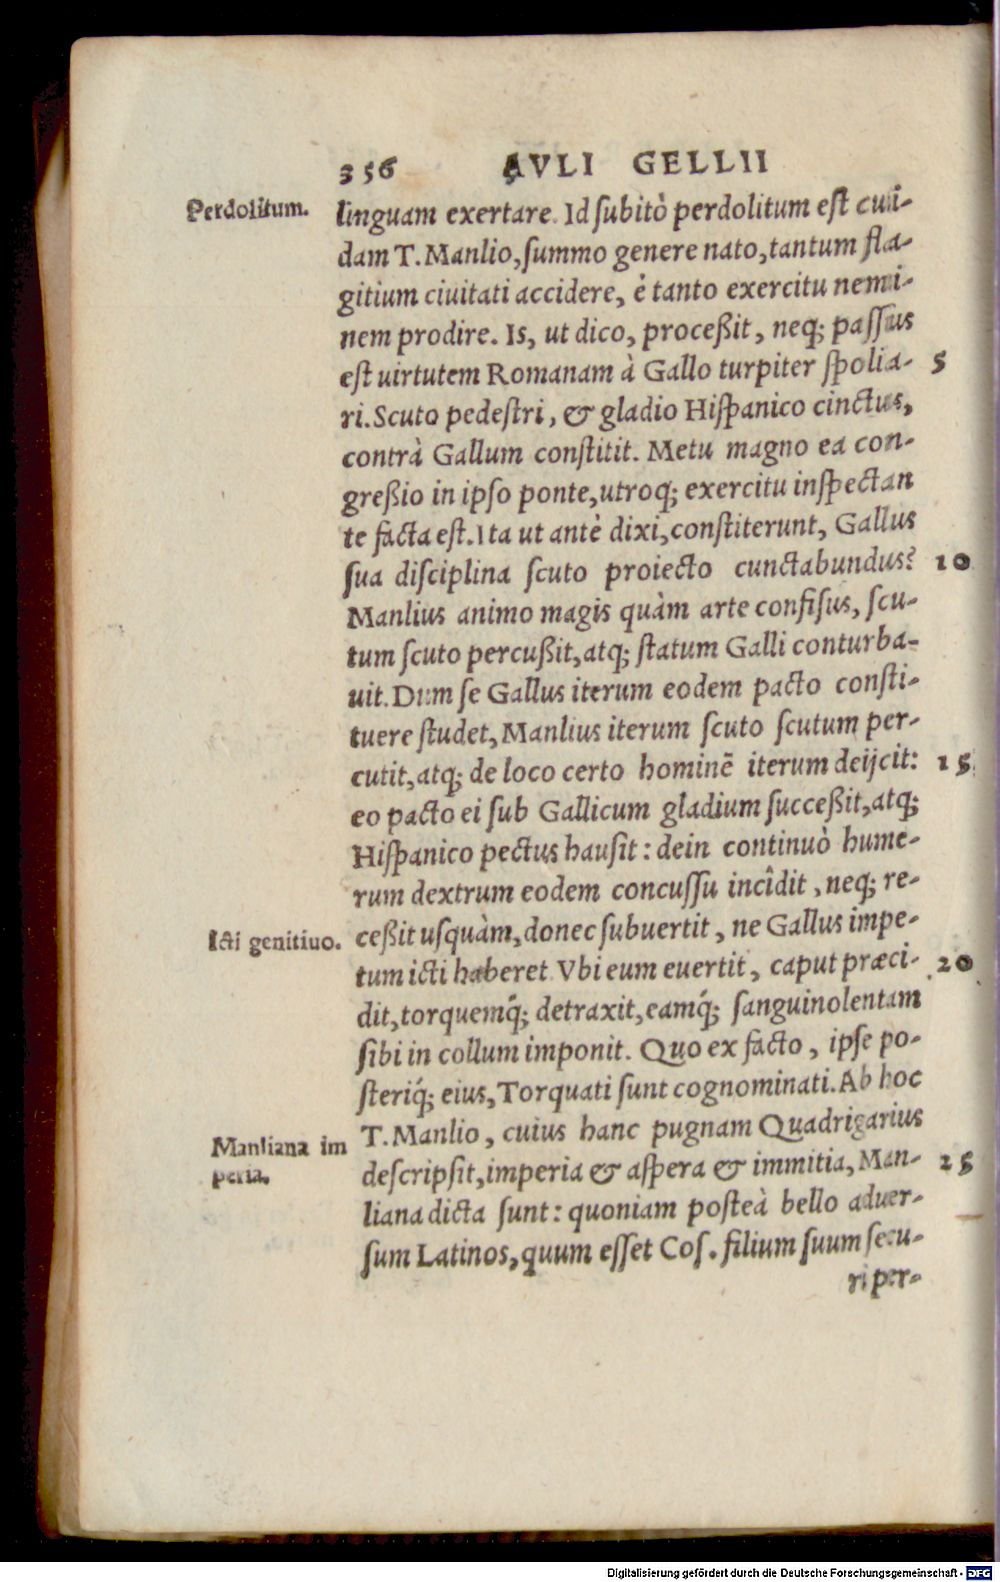 356 AVLI GELLII
Perdolitum.
linguam exertare. Id ſubitò perdolitum eſt cui-
dam T. Manlio, ſummo genere nato, tantum fla-
gitium ciuitati accidere, è tanto exercitu nemi-
nem prodire. Is, ut dico, proceßit, neq; paſſus
eſt uirtutem Romanam à Gallo turpiter ſpolia- 5
ri. Scuto pedeſtri, & gladio Hiſpanico cinctus,
contrà Gallum conſtitit. Metu magno ea con-
greßio in ipſo ponte, utroq; exercitu inſpectan
te facta eſt. Ita ut antè dixi, conſtiterunt, Gallus
ſua diſciplina ſcuto proiecto cunctabundus? 10
Manlius animo magis quàm arte confiſus, ſcu-
tum ſcuto percußit, atq; ſtatum Galli conturba-
uit. Dum ſe Gallus iterum eodem pacto conſti-
tuere ſtudet, Manlius iterum ſcuto ſcutum per-
cutit, atq; de loco certo hominē iterum deijcit: 15
eo pacto ei ſub Gallicum gladium ſucceßit, atq;
Hiſpanico pectus hauſit: dein continuò hume-
rum dextrum eodem concuſſu incîdit, neq; re-
Icti genitiuo.
ceßit uſquàm, donec ſubuertit, ne Gallus impe-
tum icti haberet. Vbi eum euertit, caput præci- 20
dit, torquemq́; detraxit, eamq́; ſanguinolentam
ſibi in collum imponit. Quo ex facto, ipſe po-
ſteriq́; eius, Torquati ſunt cognominati. Ab hoc
Manliana im
peria.
T. Manlio, cuius hanc pugnam Quadrigarius
deſcripſit, imperia & aſpera & immitia, Man- 25
liana dicta ſunt: quoniam poſteà bello aduer-
ſum Latinos, quum eſſet Coſ. filium ſuum ſecu-
ri per-
Digitalisierung gefördert durch die Deutsche Forschungsgemeinschaft - DFG